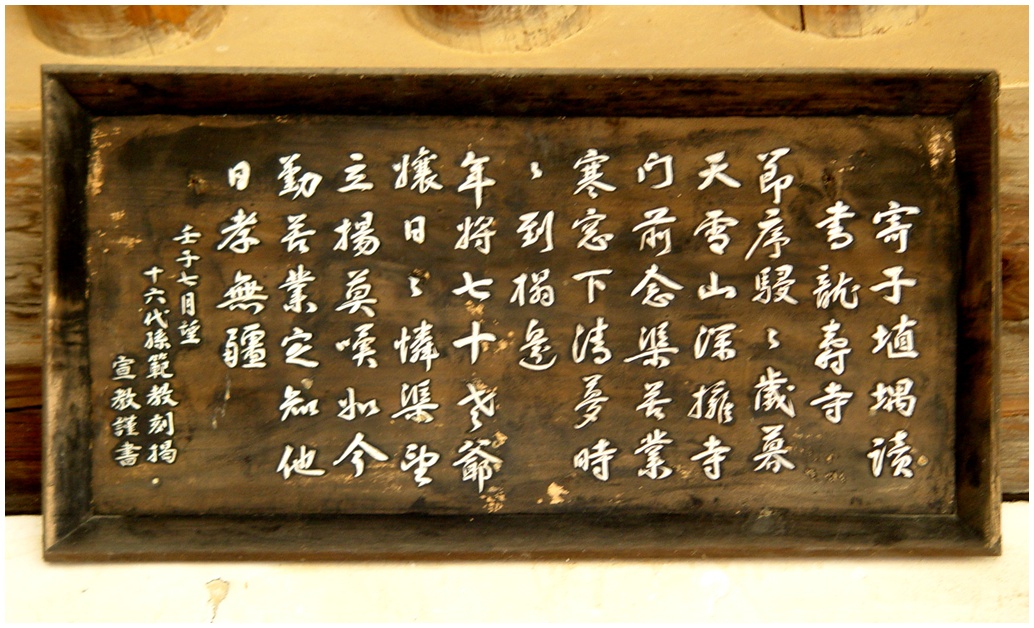 寄子埴堣讀
書龍壽寺
節序駸〻歲暮
天雪山深擁寺
门前念渠苦業
寒窓下清夢時
〻到榻邊
年將七十老爺
孃日〻憐渠望
立揚莫嘆如今
勤苦業定知他
日孝無疆
壬子七月望
十六代孫範教刻揭
宣教謹書